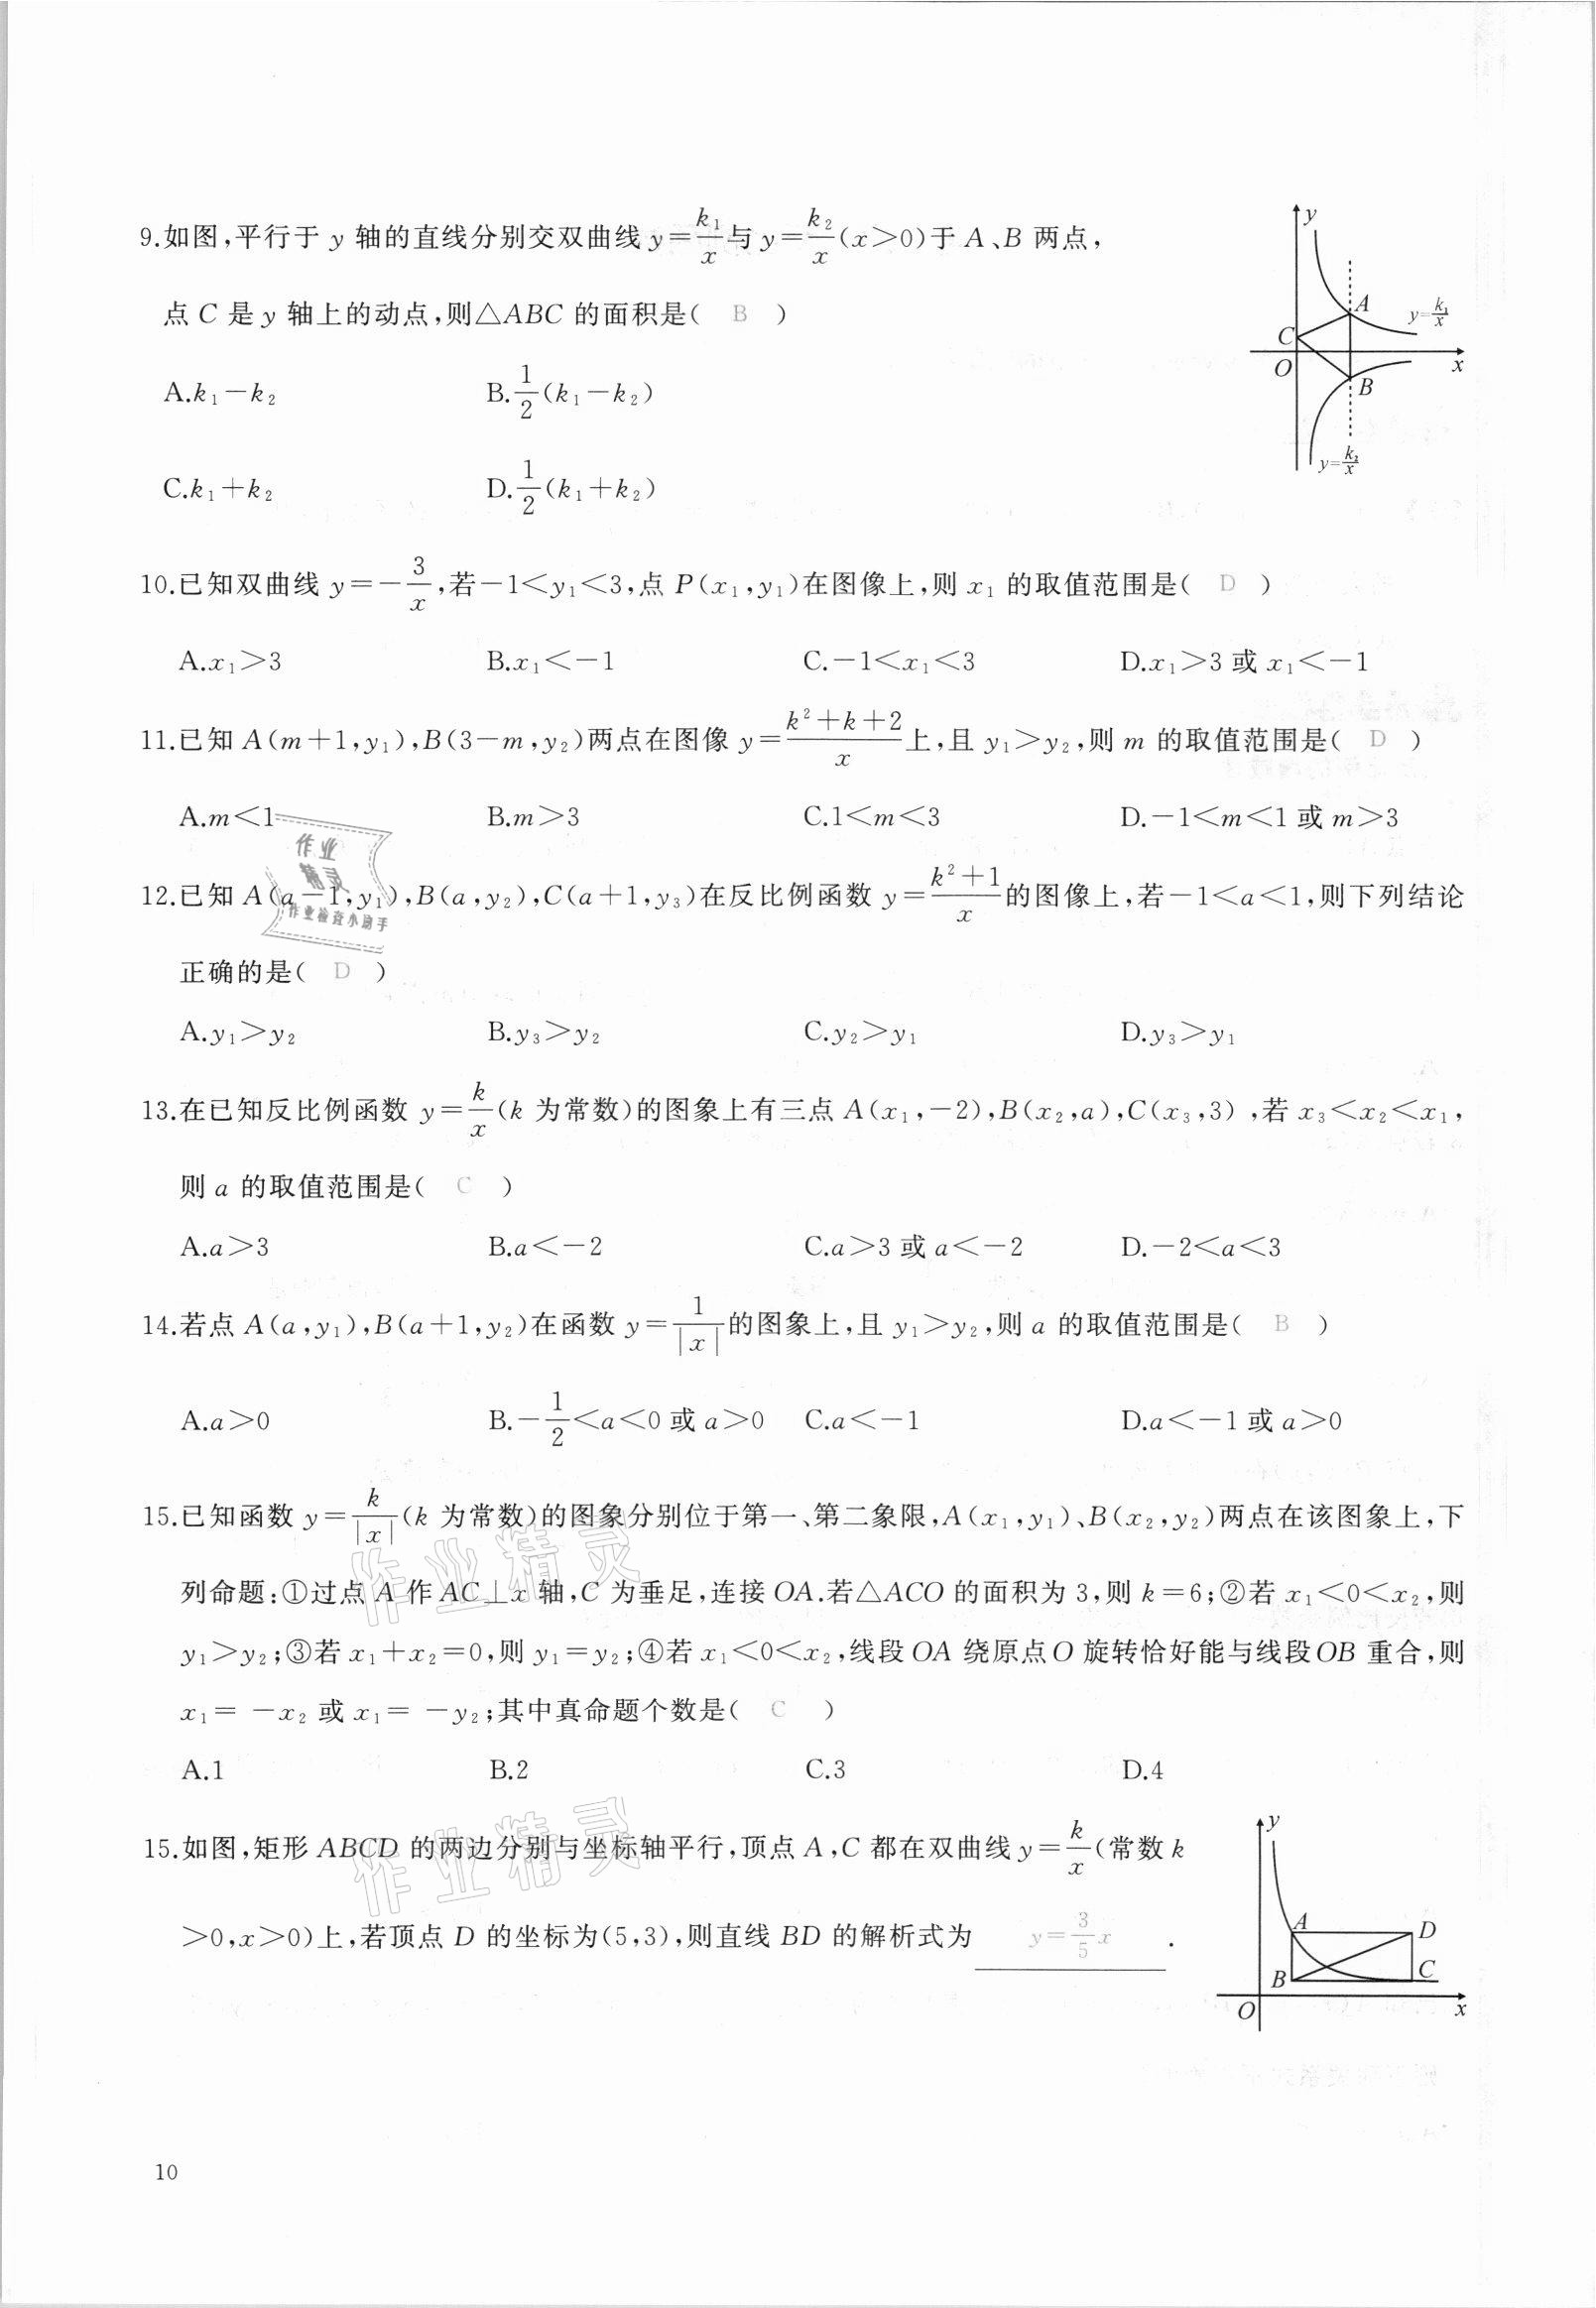 9.如图,平行于 y 轴的直线分别交双曲线 y=k₁/x 与 y=k₂/x(x>0)于 A、B 两点,
点 C 是 y 轴上的动点,则△ABC 的面积是( B )
A.k₁-k₂ B.1/2(k₁-k₂)
C.k₁+k₂ D.1/2(k₁+k₂)
y
A
y=k₁/x
C
O
x
B
y=k₂/x
10.已知双曲线 y=-3/x,若-1<y₁<3,点 P(x₁,y₁)在图像上,则 x₁ 的取值范围是( D )
A.x₁>3 B.x₁<-1 C.-1<x₁<3 D.x₁>3 或 x₁<-1
11.已知 A(m+1,y₁),B(3-m,y₂)两点在图像 y=(k²+k+2)/x 上,且 y₁>y₂,则 m 的取值范围是( D )
A.m<1 B.m>3 C.1<m<3 D.-1<m<1 或 m>3
作业
精灵
作业检查小助手
12.已知 A(a-1,y₁),B(a,y₂),C(a+1,y₃)在反比例函数 y=(k²+1)/x 的图像上,若-1<a<1,则下列结论
正确的是( D )
A.y₁>y₂ B.y₃>y₂ C.y₂>y₁ D.y₃>y₁
13.在已知反比例函数 y=k/x(k 为常数)的图象上有三点 A(x₁,-2),B(x₂,a),C(x₃,3),若 x₃<x₂<x₁,
则 a 的取值范围是( C )
A.a>3 B.a<-2 C.a>3 或 a<-2 D.-2<a<3
14.若点 A(a,y₁),B(a+1,y₂)在函数 y=1/|x| 的图象上,且 y₁>y₂,则 a 的取值范围是( B )
A.a>0 B.-1/2<a<0 或 a>0 C.a<-1 D.a<-1 或 a>0
15.已知函数 y=k/|x|(k 为常数)的图象分别位于第一、第二象限,A(x₁,y₁)、B(x₂,y₂)两点在该图象上,下
列命题:①过点 A 作 AC⊥x 轴,C 为垂足,连接 OA.若△ACO 的面积为 3,则 k=6;②若 x₁<0<x₂,则
y₁>y₂;③若 x₁+x₂=0,则 y₁=y₂;④若 x₁<0<x₂,线段 OA 绕原点 O 旋转恰好能与线段 OB 重合,则
x₁= -x₂ 或 x₁= -y₂;其中真命题个数是( C )
A.1 B.2 C.3 D.4
作业精灵
15.如图,矩形 ABCD 的两边分别与坐标轴平行,顶点 A,C 都在双曲线 y=k/x(常数 k
>0,x>0)上,若顶点 D 的坐标为(5,3),则直线 BD 的解析式为 y=3/5x .
作业精灵
y
A
D
B
C
O
x
10